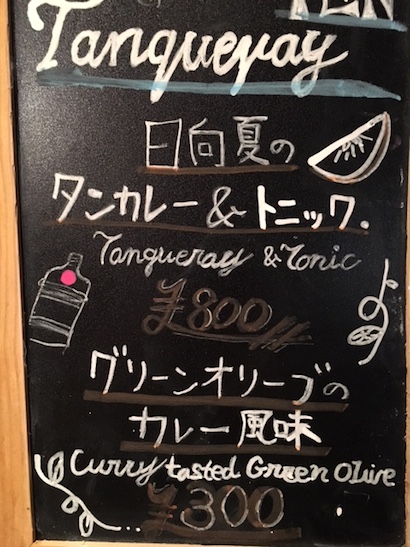 TEN
Tanqueray
日向夏の
タンカレー&トニック.
Tanqueray & Tonic
¥800
グリーンオリーブの
カレー風味
Curry tasted Green Olive
¥300